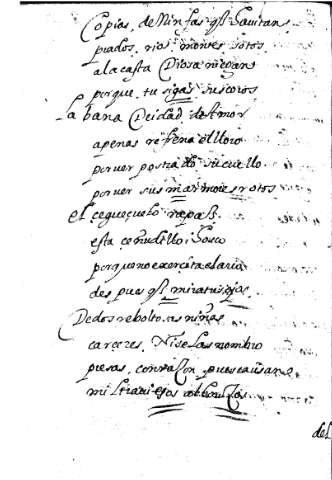 Copias, de Ninfas q̃ havitan
prados, rios montes sotos
a la casta Diosa niegan
porque, tu sigas sus coros
La bana Deidad de Amor
apenas refrena el lloro
por ver postrado su cuello
por ver sus marmoles rotos
el ceguezuelo rapaz
esta ceñudillo, i hosco
porque no exercita el arco
despues q̃ mira tus ojos
De dos reboltosas niñas
carceres. Ni se las nombro
presas, con razon pues causan
mil
del